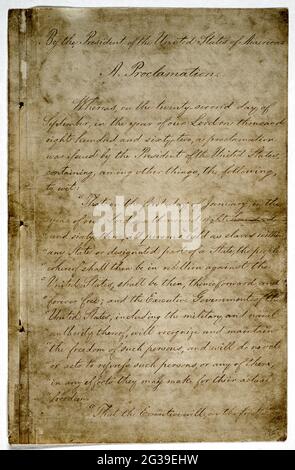 By the President of the United States of America:
A Proclamation.
Whereas, on the twenty-second day of
September, in the year of our Lord one thousand
eight hundred and sixty-two, a proclamation
was issued by the President of the United States,
containing, among other things, the following,
to wit:
"That on the first day of January, in the
year of our Lord one thousand eight hundred
and sixty-three, all persons held as slaves within
any State or designated part of a State, the people
whereof shall then be in rebellion against the
United States, shall be then, thenceforward, and
forever free; and the Executive Government of the
United States, including the military and naval
authority thereof, will recognize and maintain
the freedom of such persons, and will do no act
or acts to repress such persons, or any of them,
in any efforts they may make for their actual
freedom.
"That the Executive will, on the first
alamy
Image ID: 2G39EHW
www.alamy.com